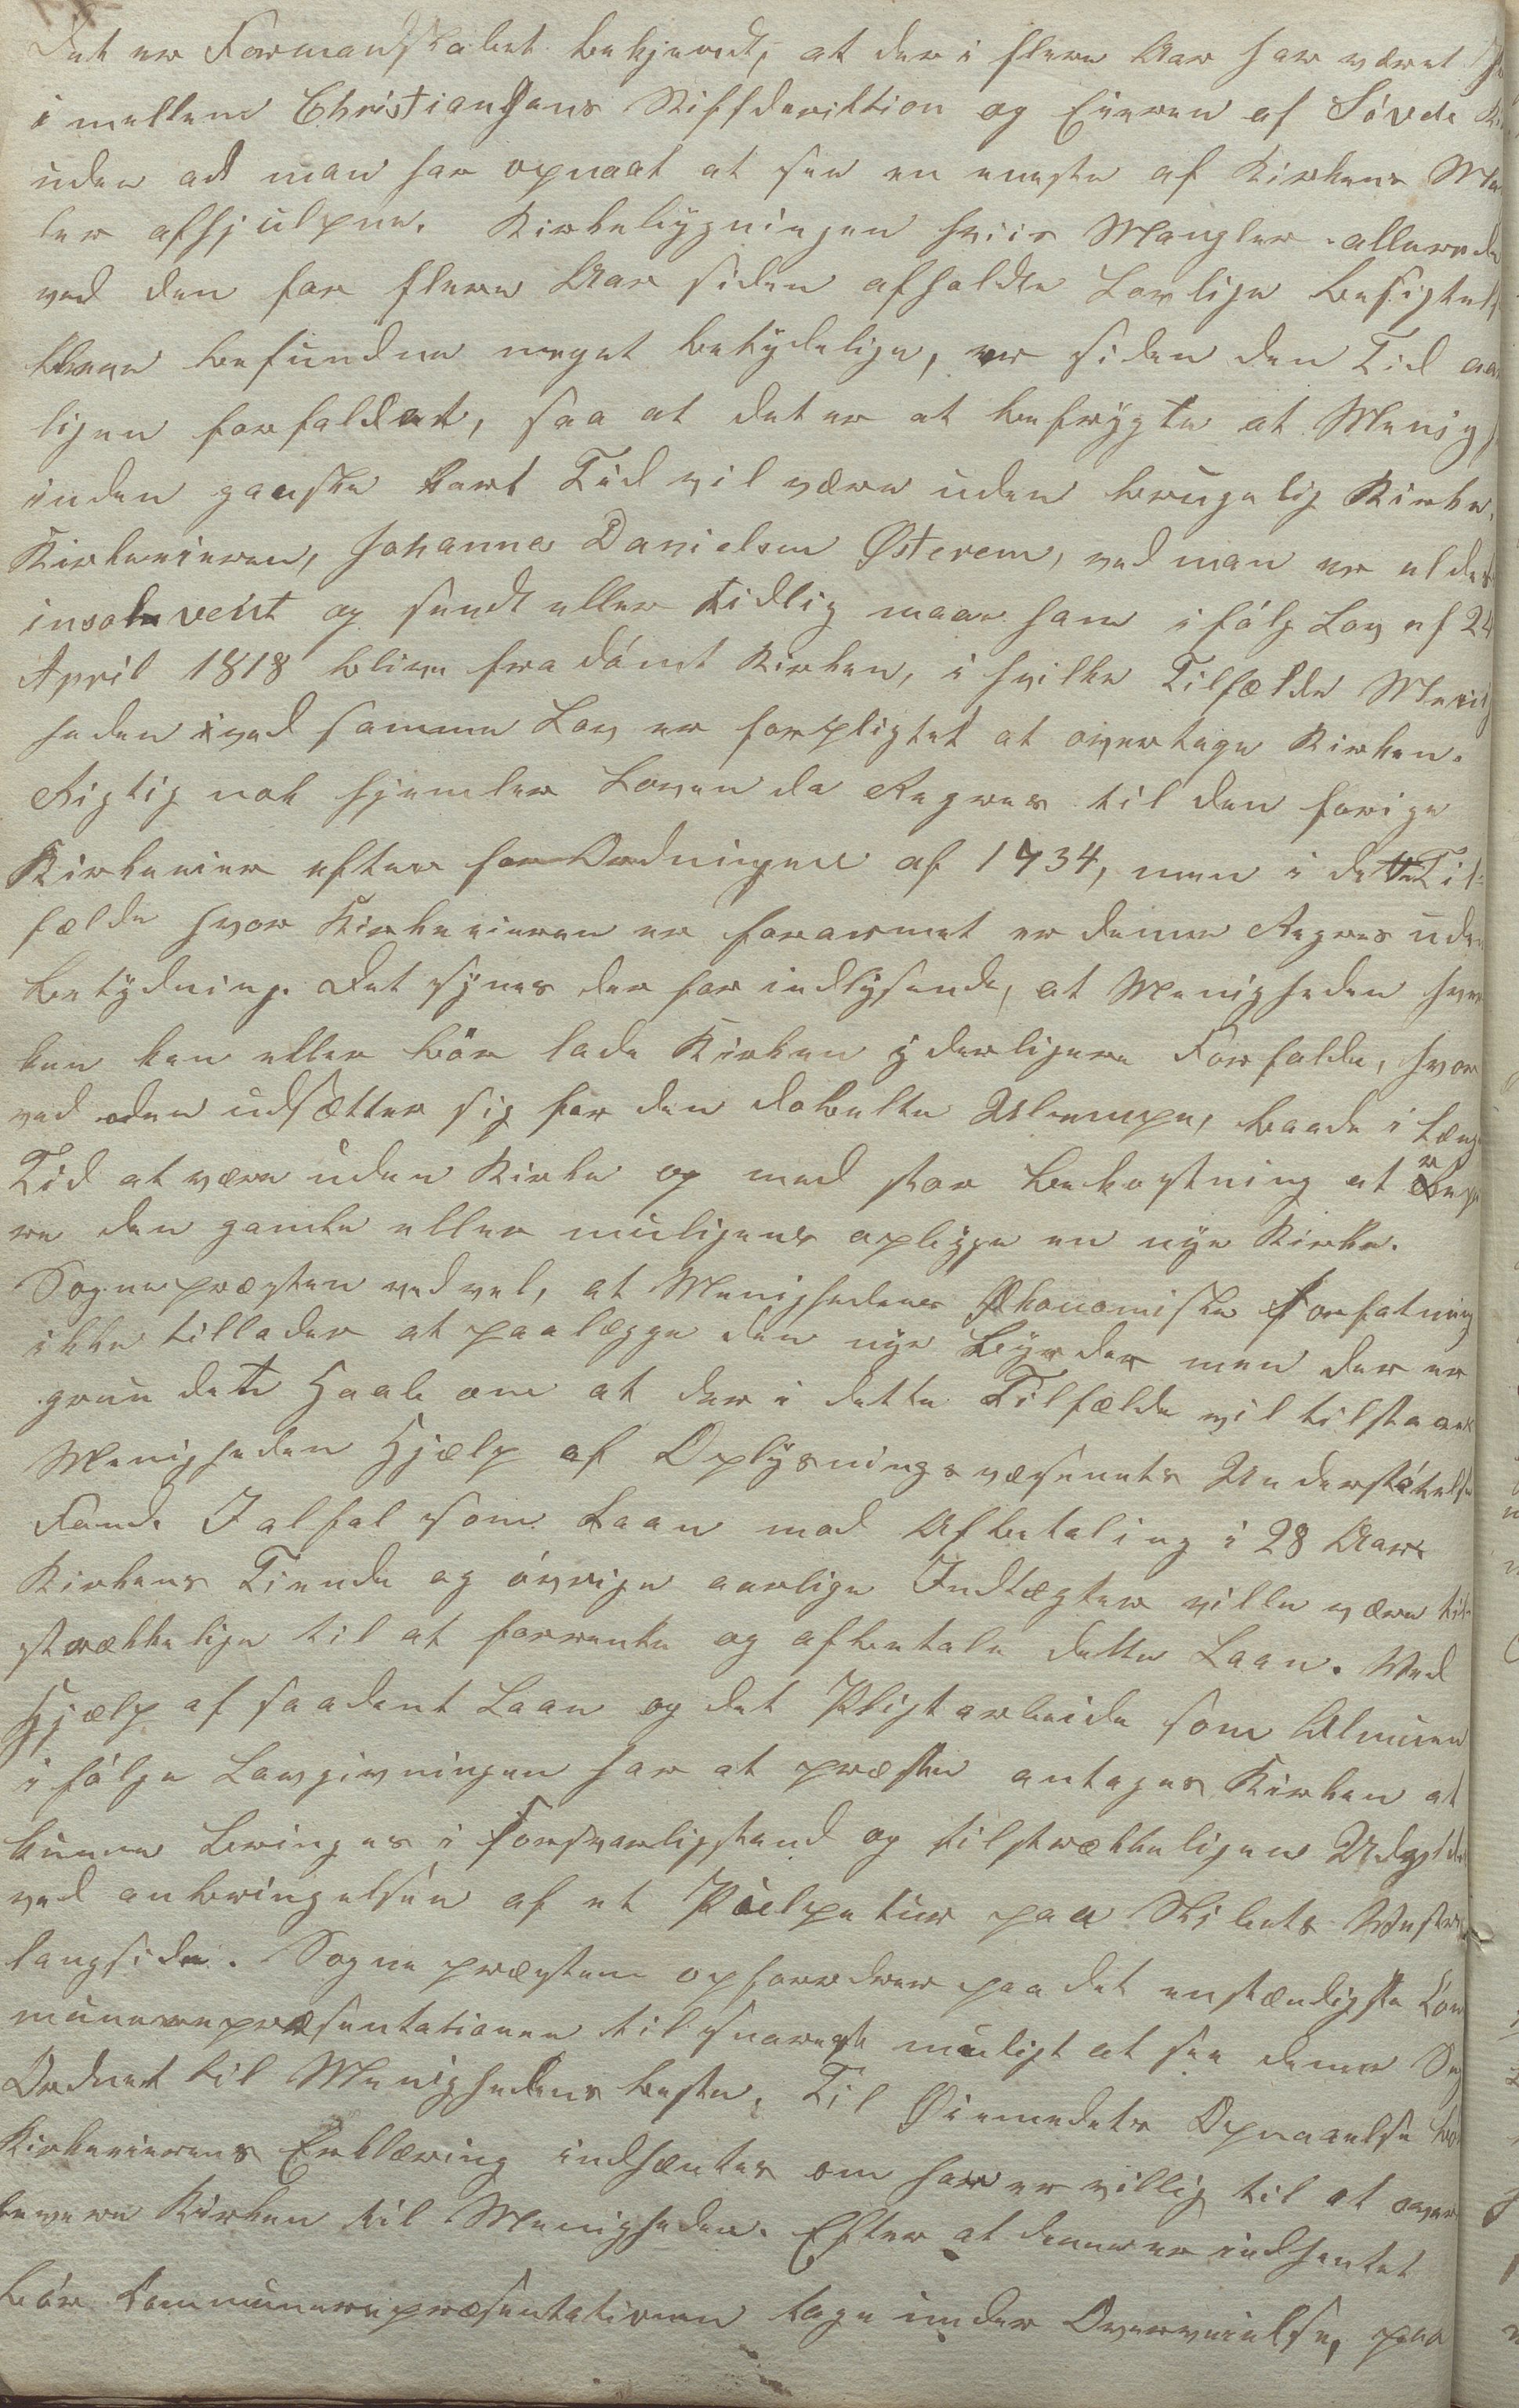 Det er Formandskabet bekjendt, at der i flere Aar har været
imellem Christiansans Stiftderiktion og Eieren af Søvde
uden at man har opnaat at see en eneste af Kirkens
ler afhjulpen. Kirkebygningen hviis Mangler allerede
ved den for flere Aar siden afholdte Lovlige Besigtel
bleve befundne meget betydelige, er siden den Tid aar
ligen forfaldet, saa at det er at befrygte at Menig
inden ganske kort Tid vil være uden brugelig Kirke.
Kirkeeieren, Johannes Danielsen Østerem, ved man er aldeles
insolvent og seent eller tidlig maa han ifølg Lov af 24
April 1818 blive fradømt Kirken, i hvilke Tilfælde Menig
heden ved samme Lov er forpligtet at overtage Kirken.
Rigtig nok hjemler Loven da Regres til den forige
Kirkeeier efter forordningen af 1734, men i dette Til-
fælde hvor Kirkeeieren er forarmet er denne Regres uden
betydning. Det synes derfor indlysende, at Menigheden hver
ken kan eller bør lade Kirken yderligere Forfalde, hvor
ved den udsætter sig for den dobelte Ulempe, baade i læng
Tid at være uden Kirke og med stor bekostning at repe
re den gamle eller muligens oplygge en nye Kirke.
Sognepræsten ved vel, at Menighedens Økonomiske Forfatning
ikke tillader at paalægge den nye Byrder men der er
grundet Haab om at der i dette Tilfælde vil tilstaaes
Menigheden Hjælp af Oplysningsvæsenets Understøtelses
Fond, Ialfal som Laan mod Afbetaling i 28 Aar.
Kirkens Tiende og øvrige aarlige Indtægter ville være til
strækkelige til at forrente og afbetale dette Laan. Ved
Hjælp af saadant Laan og det Pligtarbeide som Almuen
ifølge Lovgivningen har at præstere antages Kirken at
kunne bringes i Forsvarligstand og tilstrækkeligen Udvidet
ved anbringelsen af et Pulpetur paa Skibets Vestre
langside. Sognepræsten opfordrer paa det enstændigste Com
munerepræsentationen til snarest muligt at see denne Sag
Ordnet til Menighedens beste. Til Øiemedets Opnaaelse bør
Kirkeeierens Erklæring indhæntes om han er villig til at over
levere Kirken til Menigheden. Efter at denne er indhentet
bør Communerepræsentationen tage under Overveielse, paa